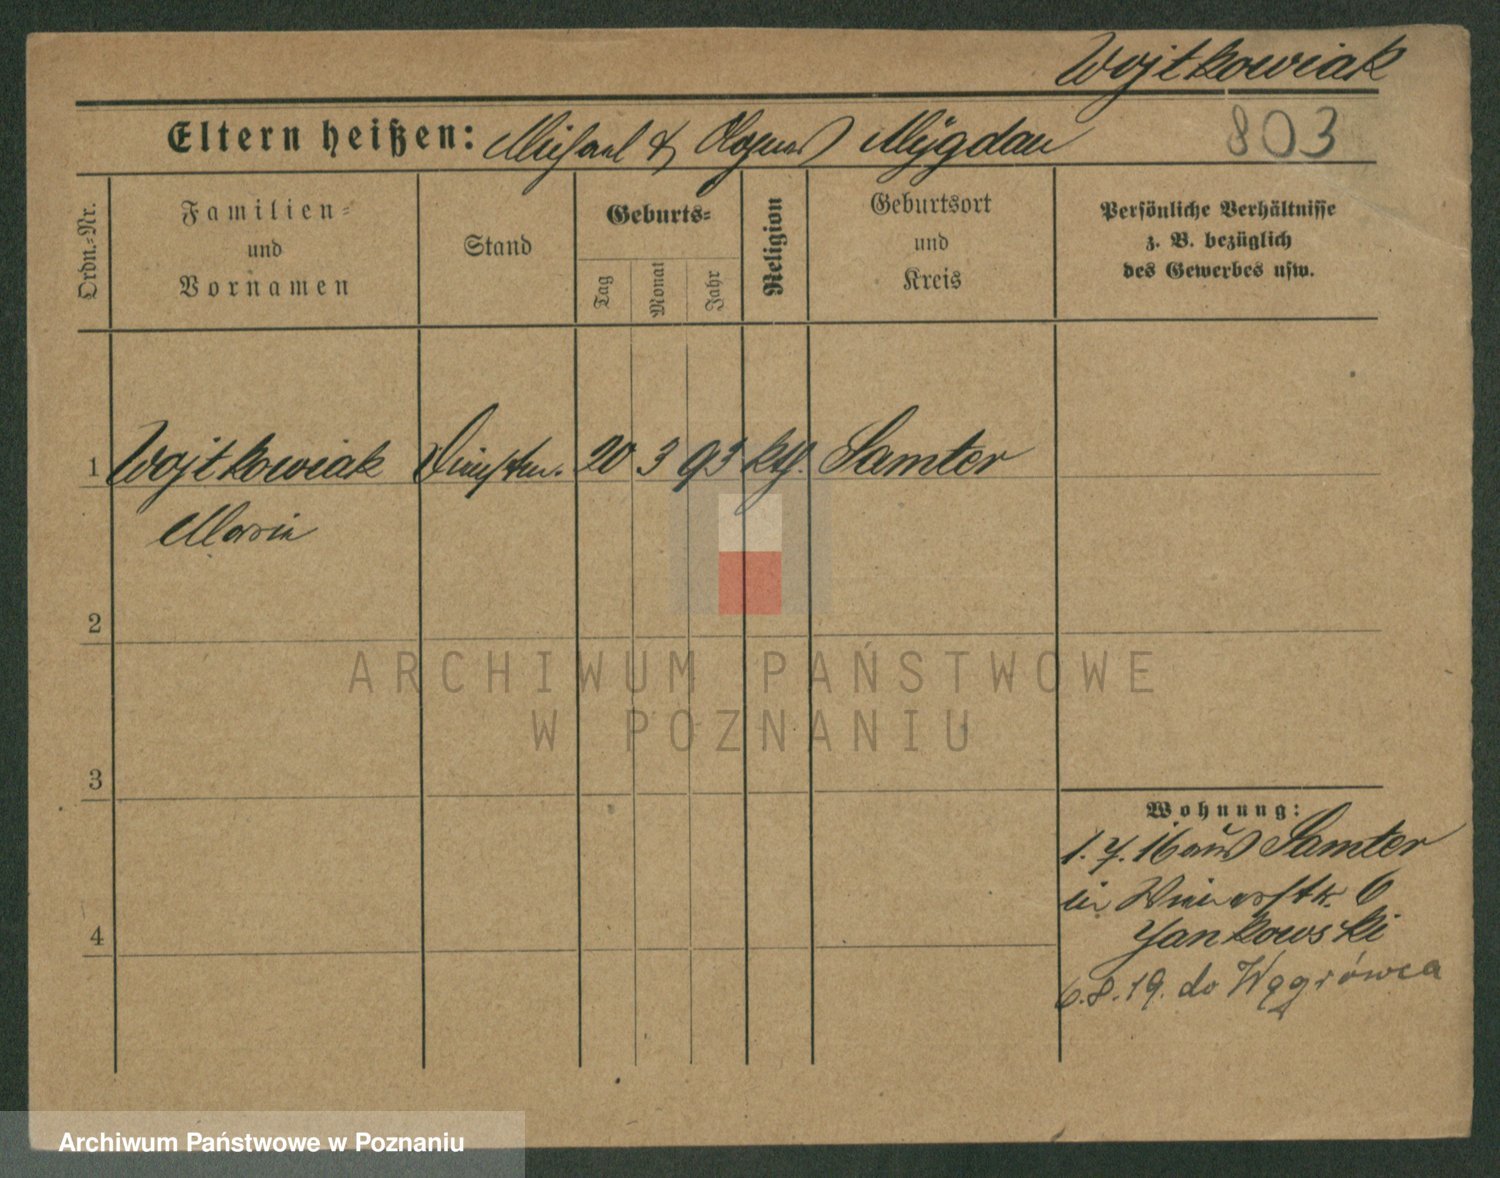 Wojtkowiak
803
Eltern heißen: Michael & Mygdau
Ordn.-Nr.
Familien- und Vornamen
Stand
Geburts-
Tag
Monat
Jahr
Religion
Geburtsort und Kreis
Persönliche Verhältnisse
z. B. bezüglich
des Gewerbes usw.
1 Wojtkowiak 20 3 93 Samter
Maria
2
3
4
Wohnung:
1. 7. 16 aus Samter
in 6
Jankowski
6.8.19. do Wągrówca
ARCHIWUM PAŃSTWOWE
W POZNANIU
Archiwum Państwowe w Poznaniu